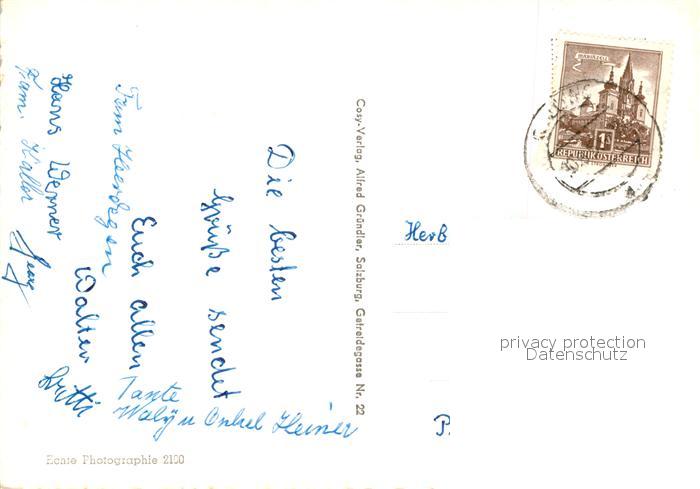 Die besten
Grüße sendet
Euch allen
Tante
Waly u Onkel Heiner
Fam Heerdegen
Walter
Hans Werner
Fam. Haller
Cosy-Verlag, Alfred Gründler, Salzburg, Getreidegasse Nr. 22
MARIAZELL
1S
REPUBLIK ÖSTERREICH
Herb
P.
privacy protection
Datenschutz
Echte Photographie 2100